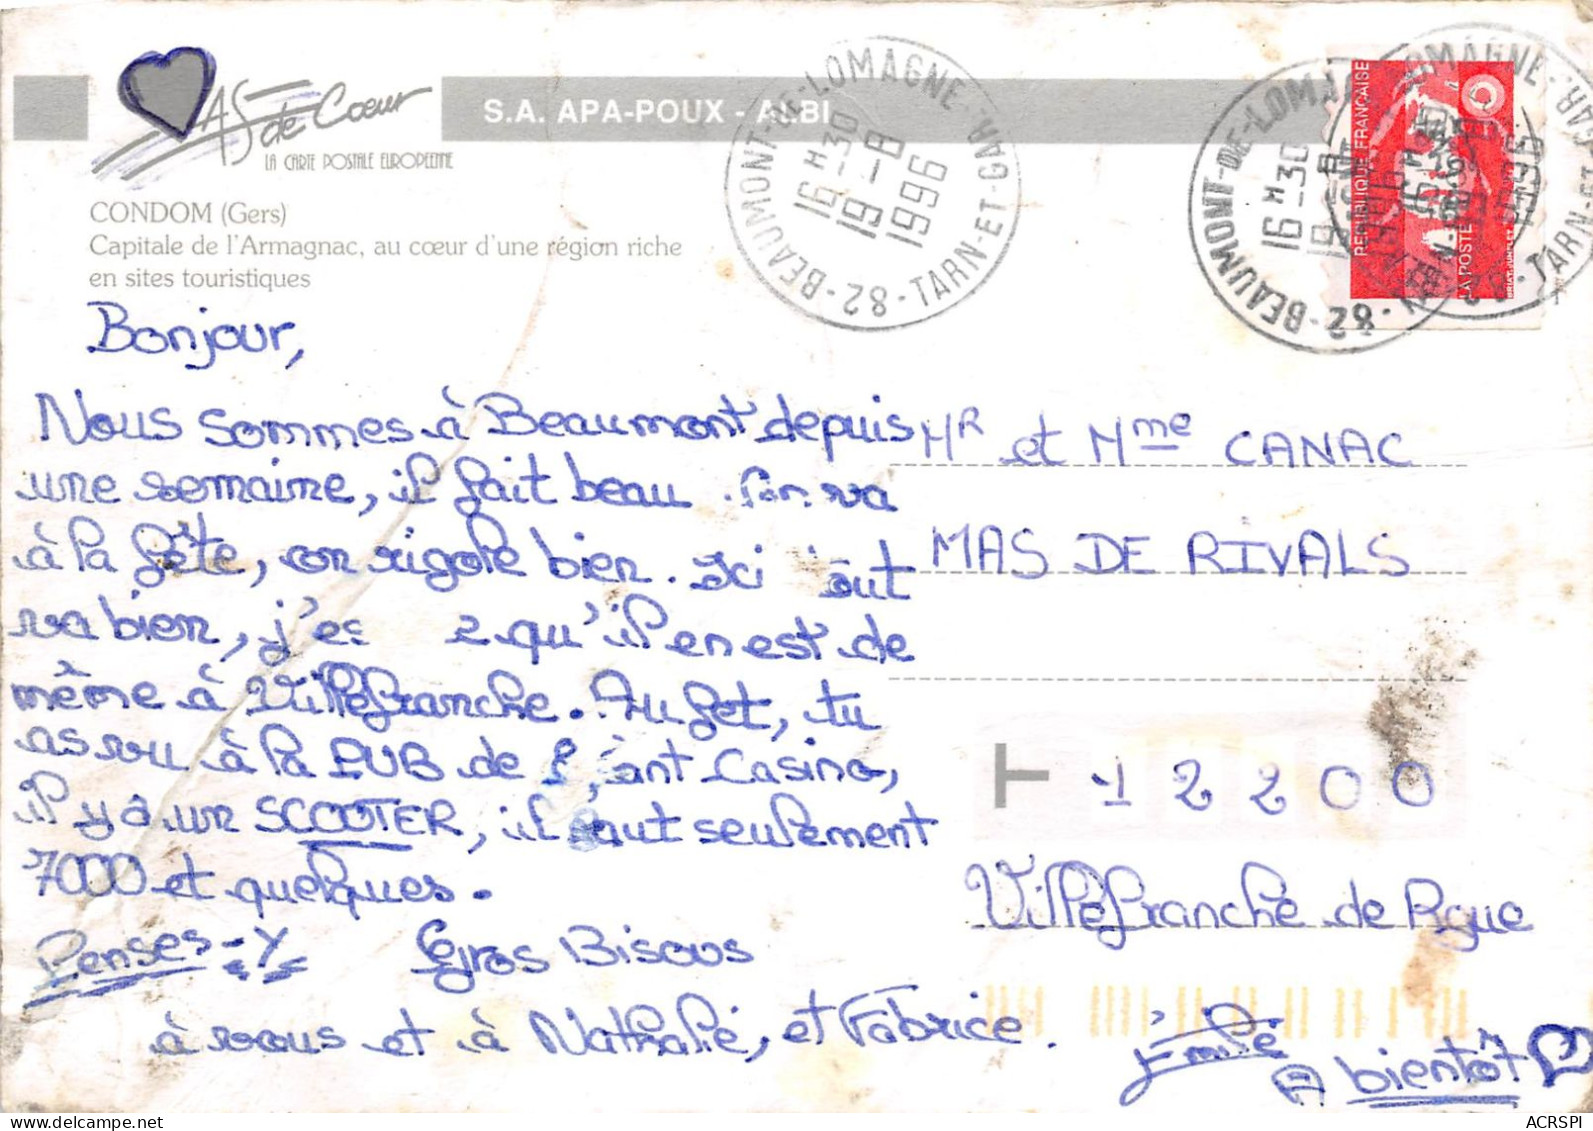 AS de Cœur
LA CARTE POSTALE EUROPÉENNE
S.A. APA-POUX - ALBI
CONDOM (Gers)
Capitale de l'Armagnac, au cœur d'une région riche
en sites touristiques
BEAUMONT-DE-LOMAGNE
16 H 30
19-8
1996
82 - TARN-ET-GAR.
BEAUMONT-DE-LOMAGNE
16 H 30
82
RÉPUBLIQUE FRANÇAISE
LA POSTE
Bonjour,
Nous sommes à Beaumont depuis
une semaine, il fait beau. va
à la fête, on rigole bien. Ici out
va bien, j'es e qu'il en est de
même à Villefranche. Au fet, tu
as vu à la PUB de ant Casino,
il y a un SCOOTER, il faut seulement
7000 et quelques.
Penses-y Gros Bisous
à vous et à Nathalie, et Fabrice.
Emilie
A bientôt
MR et Mme CANAC
MAS DE RIVALS
T 12200
Villefranche de Rgue
ACRSPI